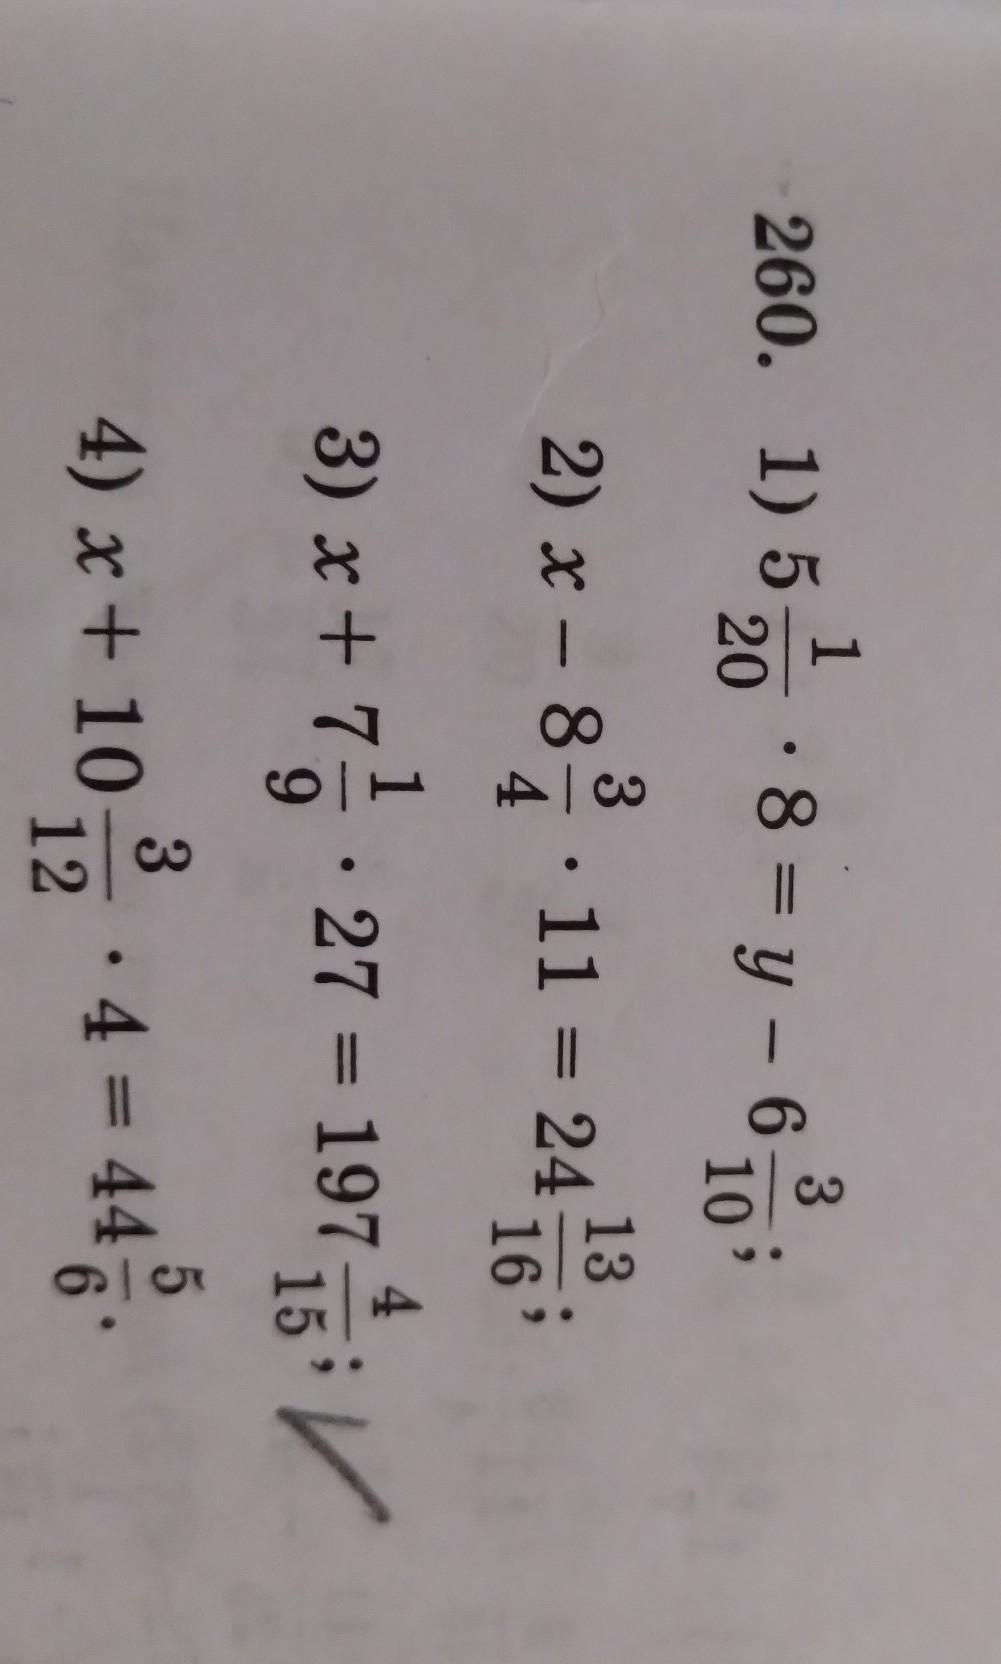 260. 1) 5 1/20 · 8 = y − 6 3/10;
2) x − 8 3/4 · 11 = 24 13/16;
3) x + 7 1/9 · 27 = 197 4/15;
4) x + 10 3/12 · 4 = 44 5/6.